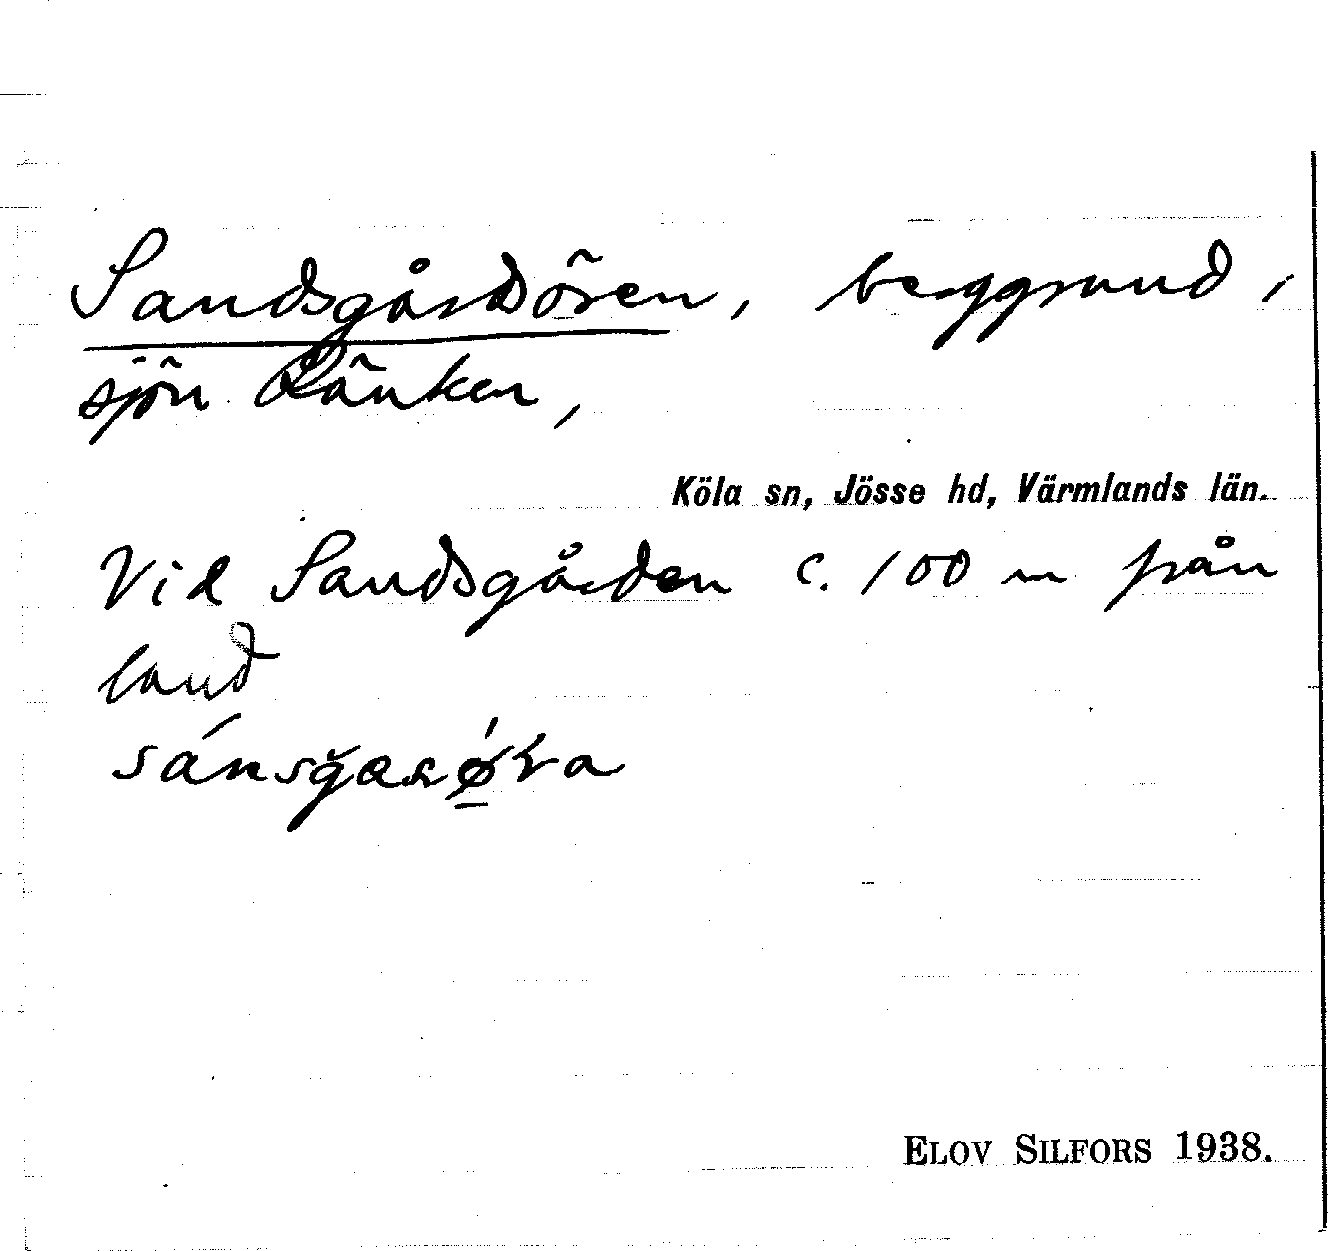 Sandsgårdören, berggrund i
sjön Ränken,
Köla sn, Jösse hd, Värmlands län.
Vid Sandsgården c. 100 m från
land
ELOV SILFORS 1938.